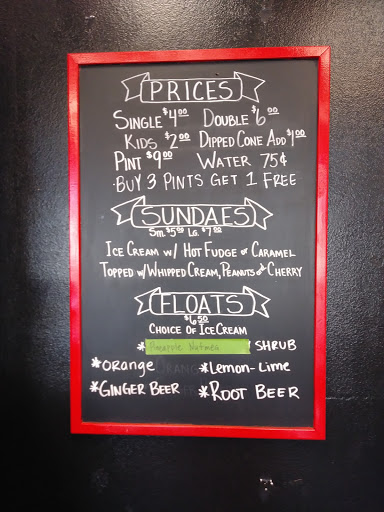 PRICES
SINGLE $4.00 DOUBLE $6.00
KIDS $2.00 DIPPED CONE ADD $1.00
PINT $9.00 WATER 75¢
·BUY 3 PINTS GET 1 FREE
SUNDAES
Sm. $5.00 LG. $7.00
ICE CREAM w/ HOT FUDGE or CARAMEL
TOPPED w/WHIPPED CREAM, PEANUTS and CHERRY
FLOATS
$6.50
CHOICE OF ICE CREAM
*Pineapple Nutmeg SHRUB
*Orange *Lemon-Lime
*GINGER BEER *ROOT BEER